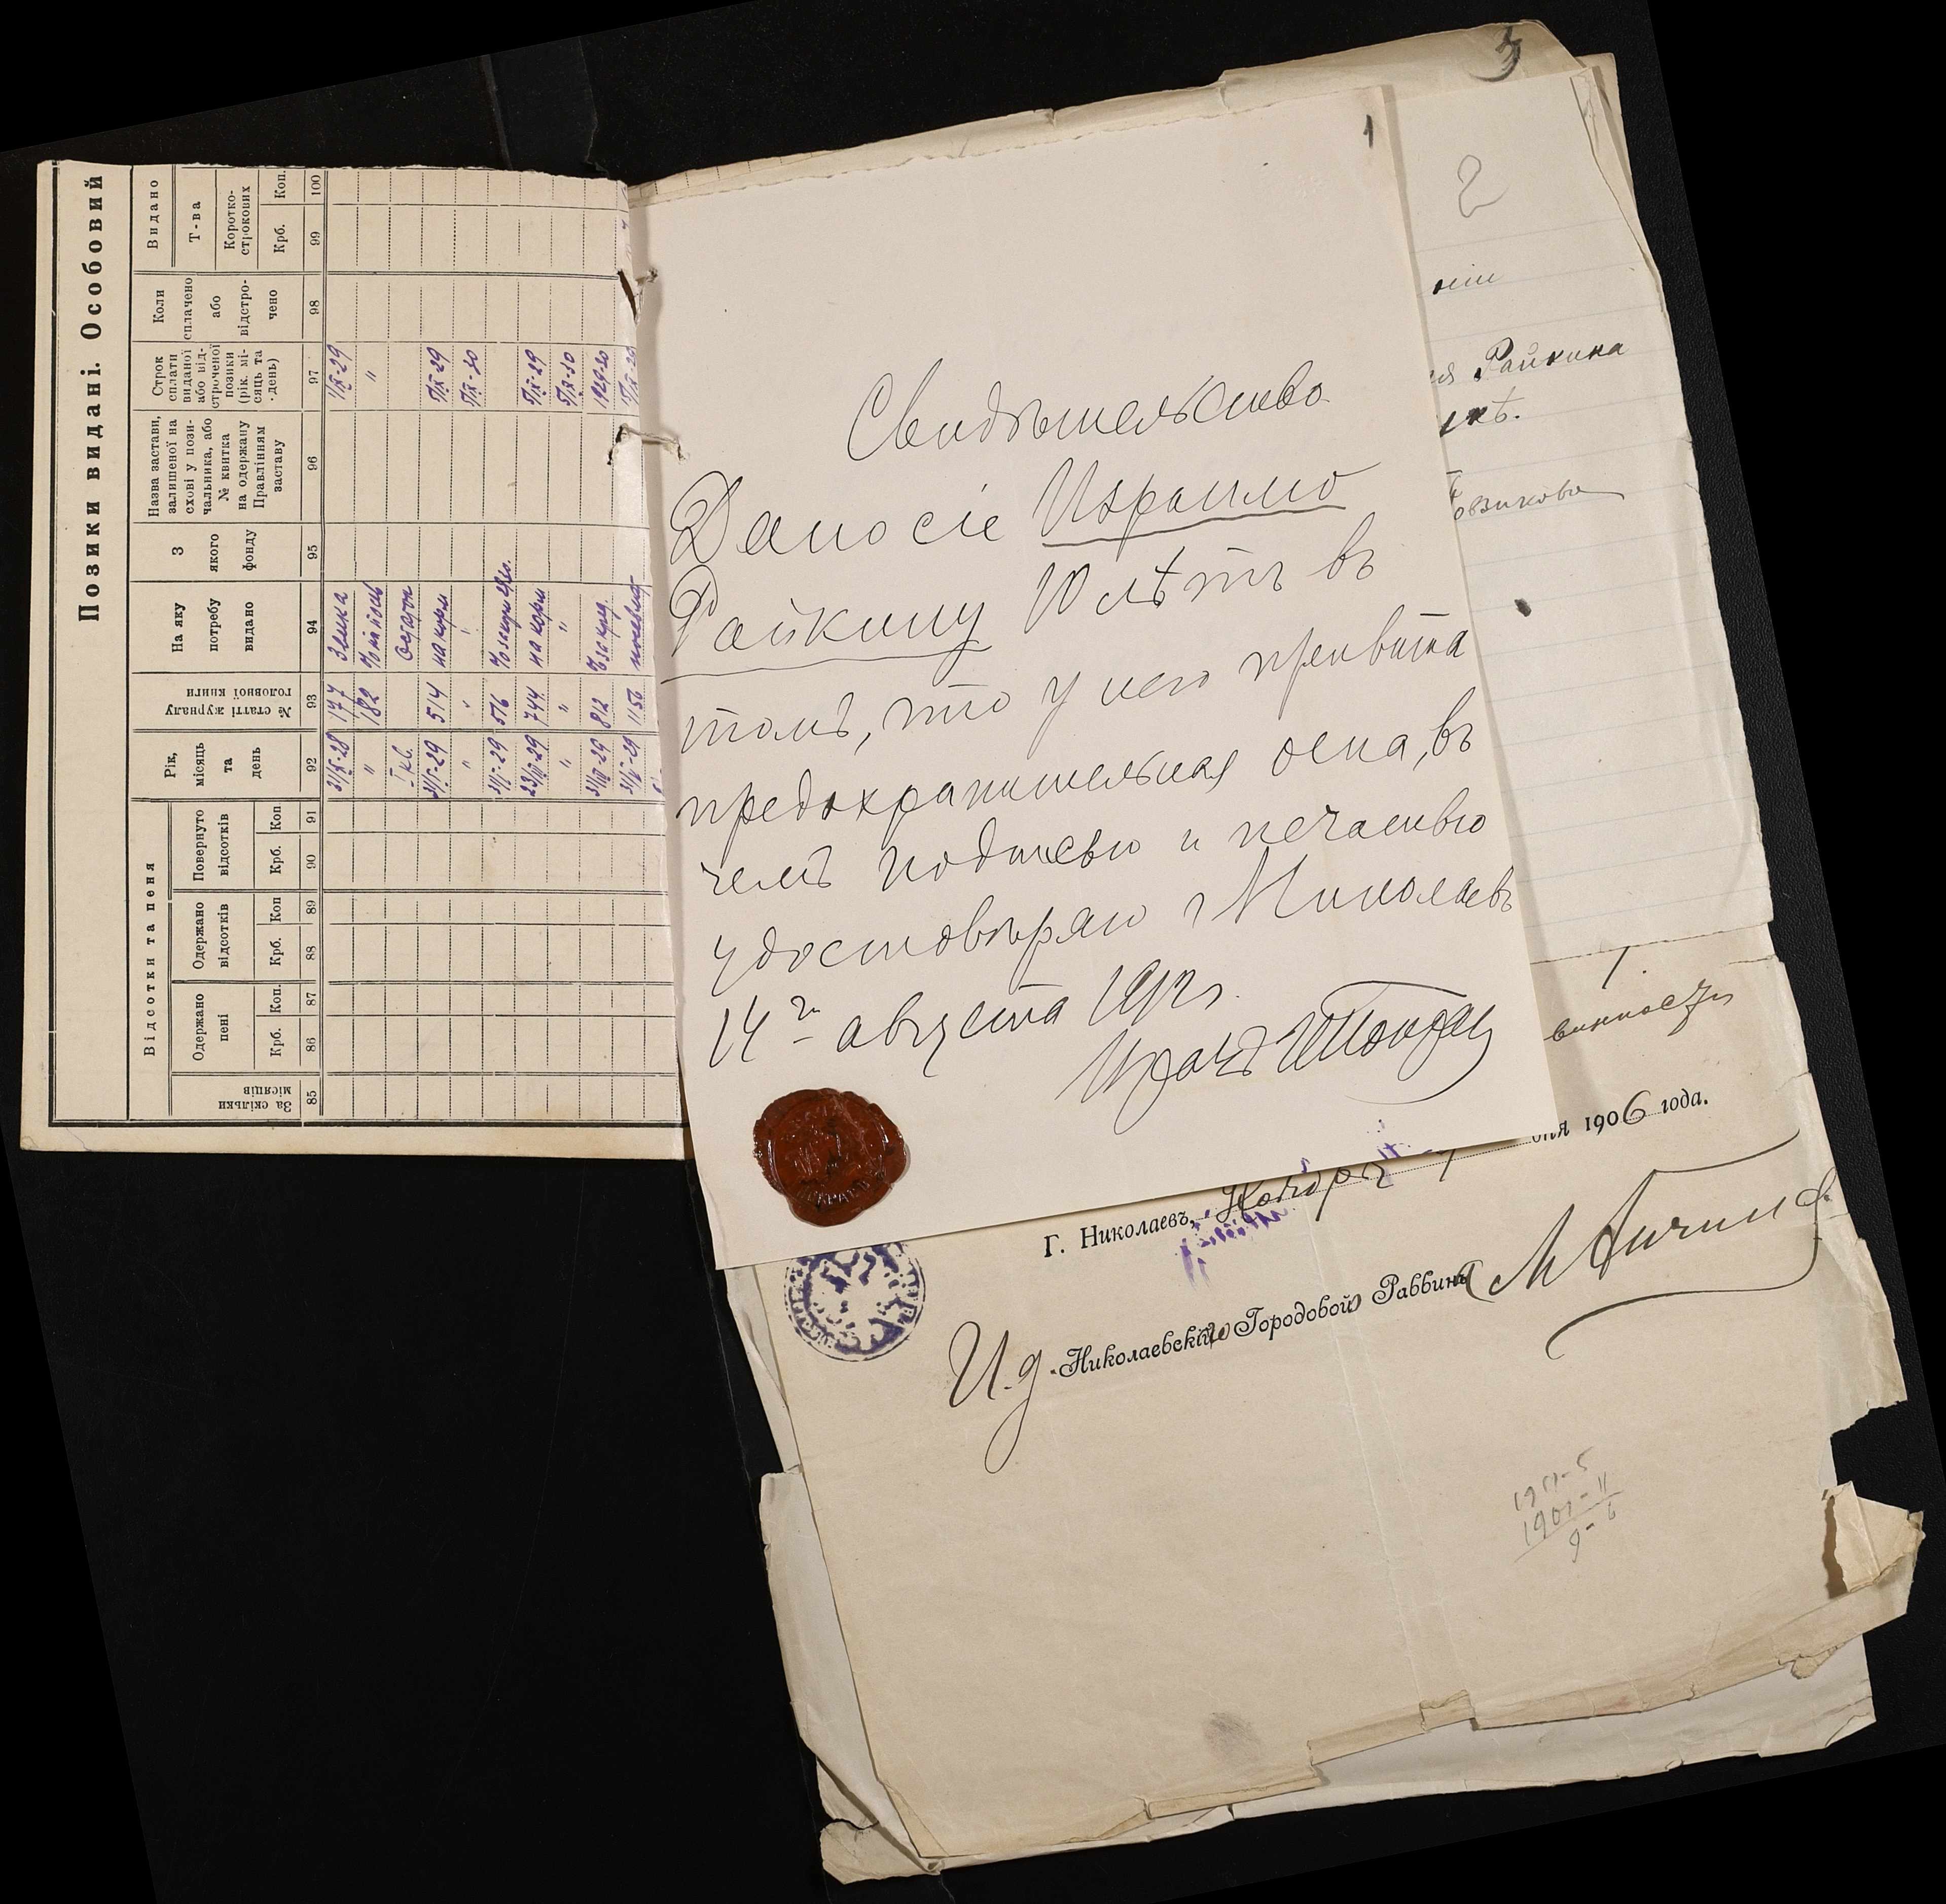 Позики видані. Особовий
Відсотки та пеня
Видано
За скільки місяців
Одержано пені
Одержано відсотків
Повернуто відсотків
Рік, місяць та день
№ статті журналу головної книги
На яку потребу видано
З якого фонду
Назва застави, залишеної на схові у пози-чальника, або № квитка на одержану Правлінням заставу
Строк сплати виданої або від-строченої позики (рік. мі-сяць та день)
Коли сплачено або відстро-чено
Т-ва
Коротко-строкових
Крб. Коп. Крб. Коп Крб. Коп Крб. Коп.
85 86 87 88 89 90 91 92 93 94 95 96 97 98 99 100
31/X-28 177 1/IX-29
" 182 "
I кв.
31/I-29 514 на корм 5/IX-29
" " " 5/IX-30
516
23/III-29 744 на корм 5/IX-29
" " " 5/IX-30
31/III-29 812 1929-30
1150
1
Свидѣтельство
Дано сіе Израилю
Райкину 10 лѣтъ въ
томъ, что у него привита
предохранительная оспа, въ
чемъ подписью и печатью
удостовѣряю г Николаевъ
14го августа 1912 г.
Врачъ
5
2
нія Райкина
1
винности
Г. Николаевъ, Ноября 7 дня 1906 года.
И.д. Николаевскій Городовой Раввинъ
1911-5
1901-11
9-6